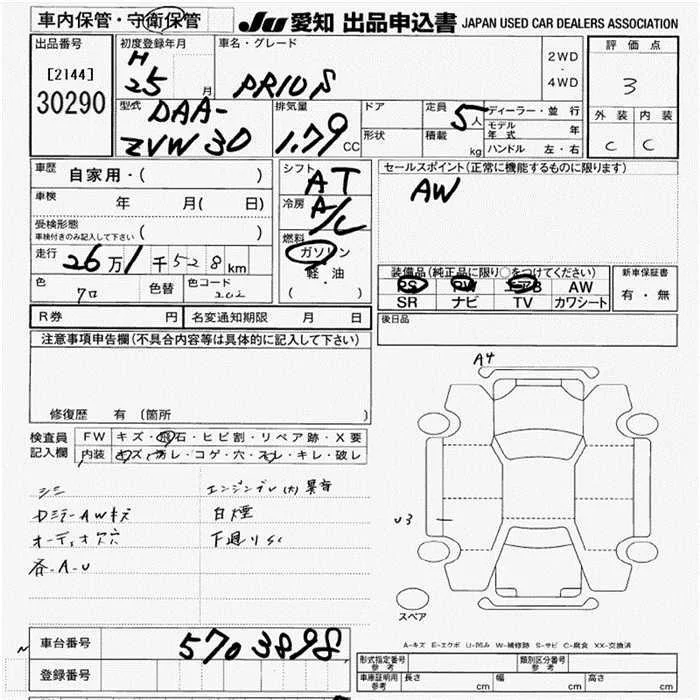 車内保管・守衛保管
JU 愛知 出品申込書 JAPAN USED CAR DEALERS ASSOCIATION
出品番号
[2144]
30290
初度登録年月
H
25 月
車名・グレード
PRIUS
2WD
・
4WD
評価点
3
外装 内装
C C
型式
DAA-
ZVW30
排気量
1.79 CC
ドア
形状
定員
5人
積載 kg
ディーラー・並行
モデル年式 年
ハンドル 左・右
車歴
自家用・( )
車検
年 月( 日)
受検形態
車検付きのみ記入して下さい
( )
走行
26万1千528km
色
クロ
色替
色コード
202
シフト
AT
冷房
A/C
燃料
ガソリン
・
軽油
( )
セールスポイント(正常に機能するものに限ります)
AW
装備品(純正品に限り○をつけてください)
PS PW エアB AW
SR ナビ TV カワシート
新車保証書
有・無
R券 円
名変通知期限 月 日
後日品
注意事項申告欄(不具合内容等は具体的に記入して下さい)
修復歴 有(箇所 )
検査員
記入欄
FW キズ・飛石・ヒビ割・リペア跡・X要
内装 キズ・ヨゴレ・コゲ・穴・スレ・キレ・破レ
シミ
DミラーAWキズ
オーディオ穴
各-A-U
エンジンブレ(内)異音
白煙
下廻りSC
A4
U3
スペア
A-キズ E-エクボ U-凹み W-補修跡 S-サビ C-腐食 XX-交換済
車台番号
5703898
登録番号
型式指定番号
参考
類別区分番号
参考
車庫証明用
参考
長さ cm
幅 cm
高さ cm